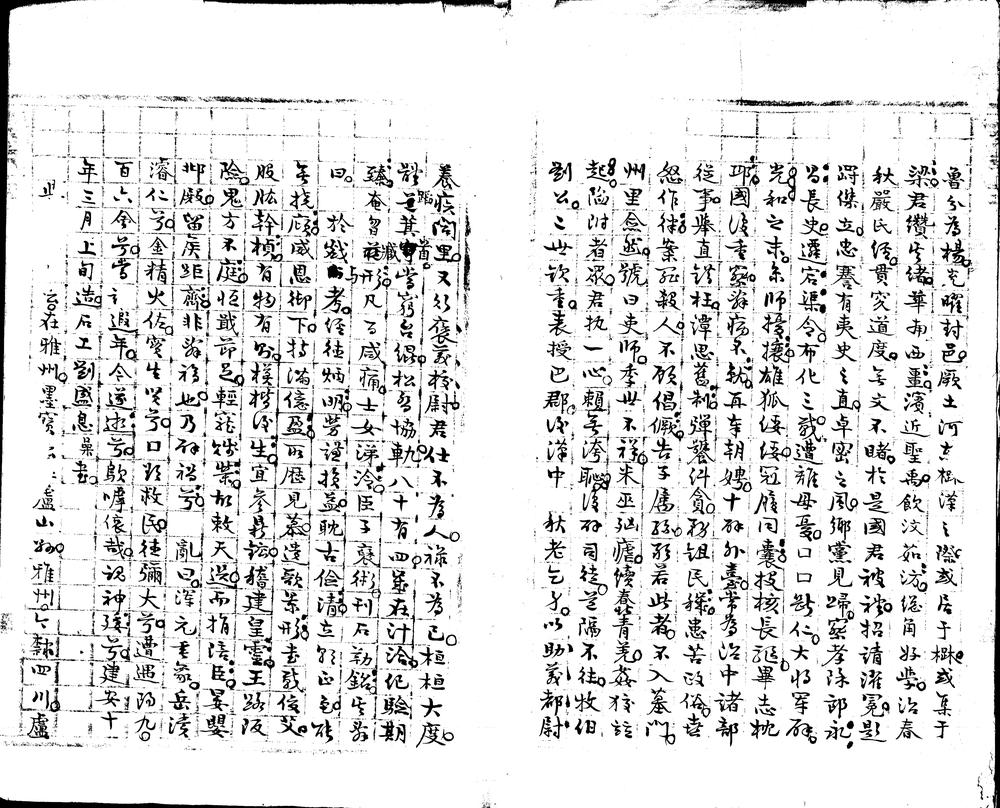 魯分為楊充曜封邑厥土河東楚漢之際或居于楚或集于
梁君纘其緒華南西疆濱近聖禹飲汶茹汸總角好學治春
秋嚴氏經貫究道度無文不睹於是國君被禮招請濯冕題
諤傑立忠謇有夷史之直卓密之風鄉黨見歸察孝除郎永
昌長史遷宕渠令布化三載遭離母憂口口斷仁大將軍辟
光和之末京師擾攘雄狐綏綏冠履同囊投核長驅畢志枕
邱國復重察辭病不就再奉朝娉十辟外臺常為治中諸部
從事舉直錯枉潭思舊制彈饕糾貪務鉏民穢患苦政俗喜
怒作律案罪殺人不顧倡獗告子屬孫敢若此者不入墓門
州里僉然號曰吏師季世不祥米巫凶瘧續蠢青羌姦狡並
起陷附者眾君執一心賴無洿恥復辟司徒道隔不往牧伯
劉公二世欽重表授巴郡後漢中　秋老乞身以助義都尉
養疾閭里又行褒義校尉君仕不為人祿不為己桓桓大度
體蹈箕首當窮台緄松喬協軌八十有四歲在汁洽紀驗期
臻奄曶臧形凡百咸痛士女涕泠臣子褒術刊石勒銘其辭
曰　於戲與考經德炳明勞謙損益耽古儉清立朝正色能
無撓廎威恩御下持滿億盈所歷見慕遺歌景形書載俊艾
股肱幹楨有物有則模楷後生宜參鼎鉉稽建皇靈王路阪
險鬼方不庭恒戢節足輕寵賤榮故敕天選而捐陪臣晏嬰
邶殿留侯距齊非辭福也乃辟禍兮　亂曰渾元垂象岳瀆
濬仁兮金精火佐寔生賢兮口欲救民德彌大兮遭遇陽九
百六會兮當言遐年今遂逝兮歔嚱哀哉魂神往兮建安十
年三月上旬造石工劉盛息懆書
　　　　在雅州墨寶　盧山物雅州今隸四川盧